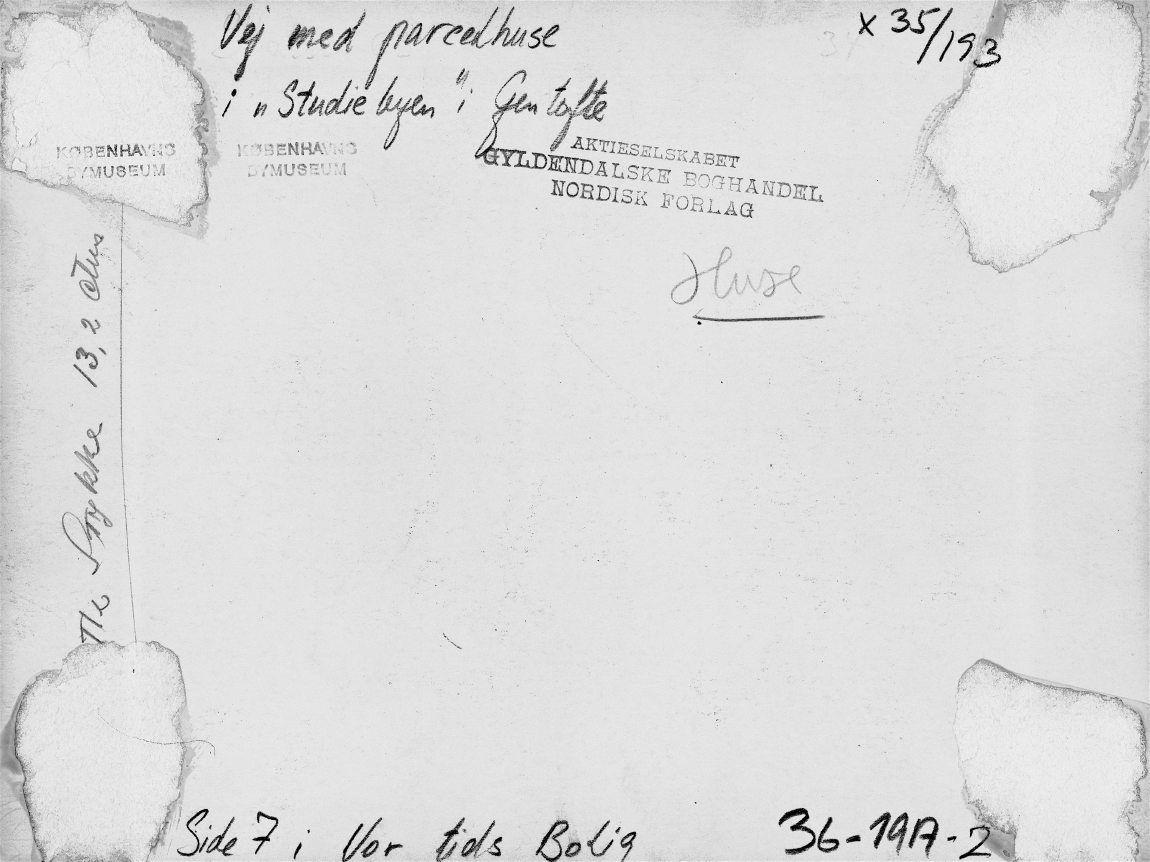 Vej med parcelhuse
x 35/193
i „Studiebyen" i Gentofte
KØBENHAVNS
BYMUSEUM
KØBENHAVNS
BYMUSEUM
AKTIESELSKABET
GYLDENDALSKE BOGHANDEL
NORDISK FORLAG
Huse
Stykke 13,2
Side 7 i Vor tids Bolig
36-1917-2